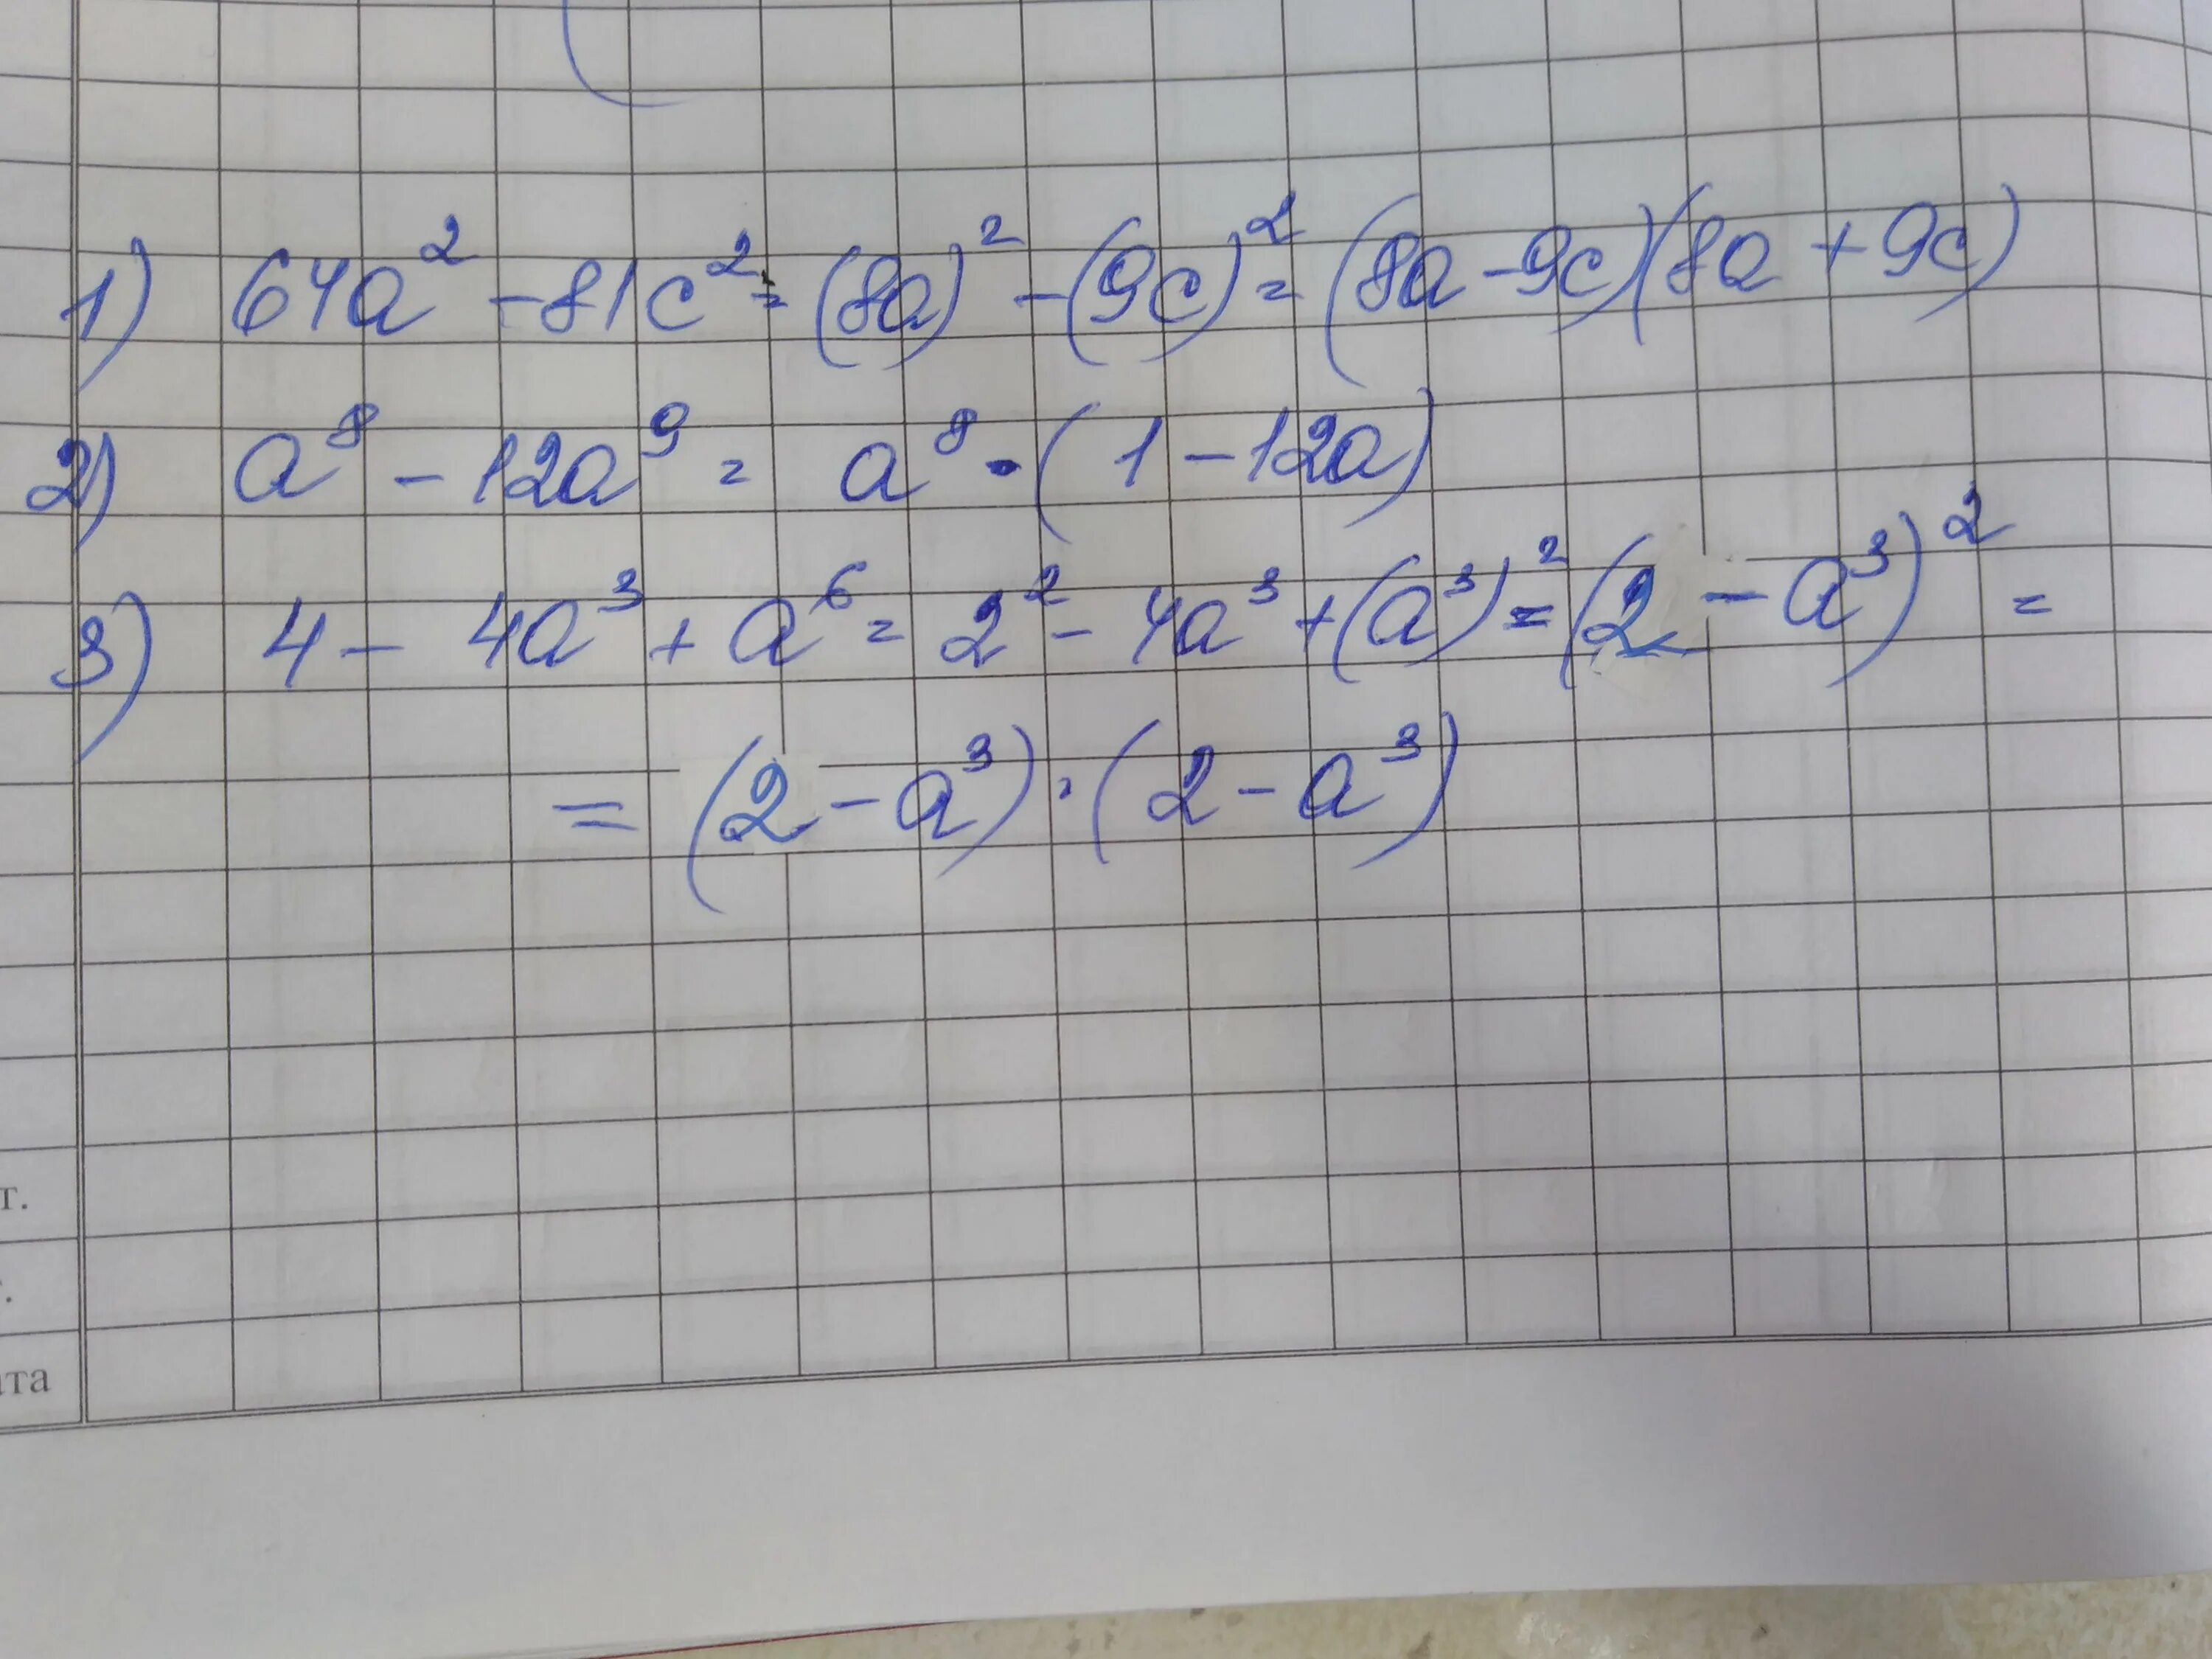 1) 64a² - 81c² = (8a)² - (9c)² = (8a - 9c)(8a + 9c)
2) a⁸ - 12a⁹ = a⁸ · (1 - 12a)
3) 4 - 4a³ + a⁶ = 2² - 4a³ + (a³)² = (2 - a³)² =
= (2 - a³) · (2 - a³)
т.
ата